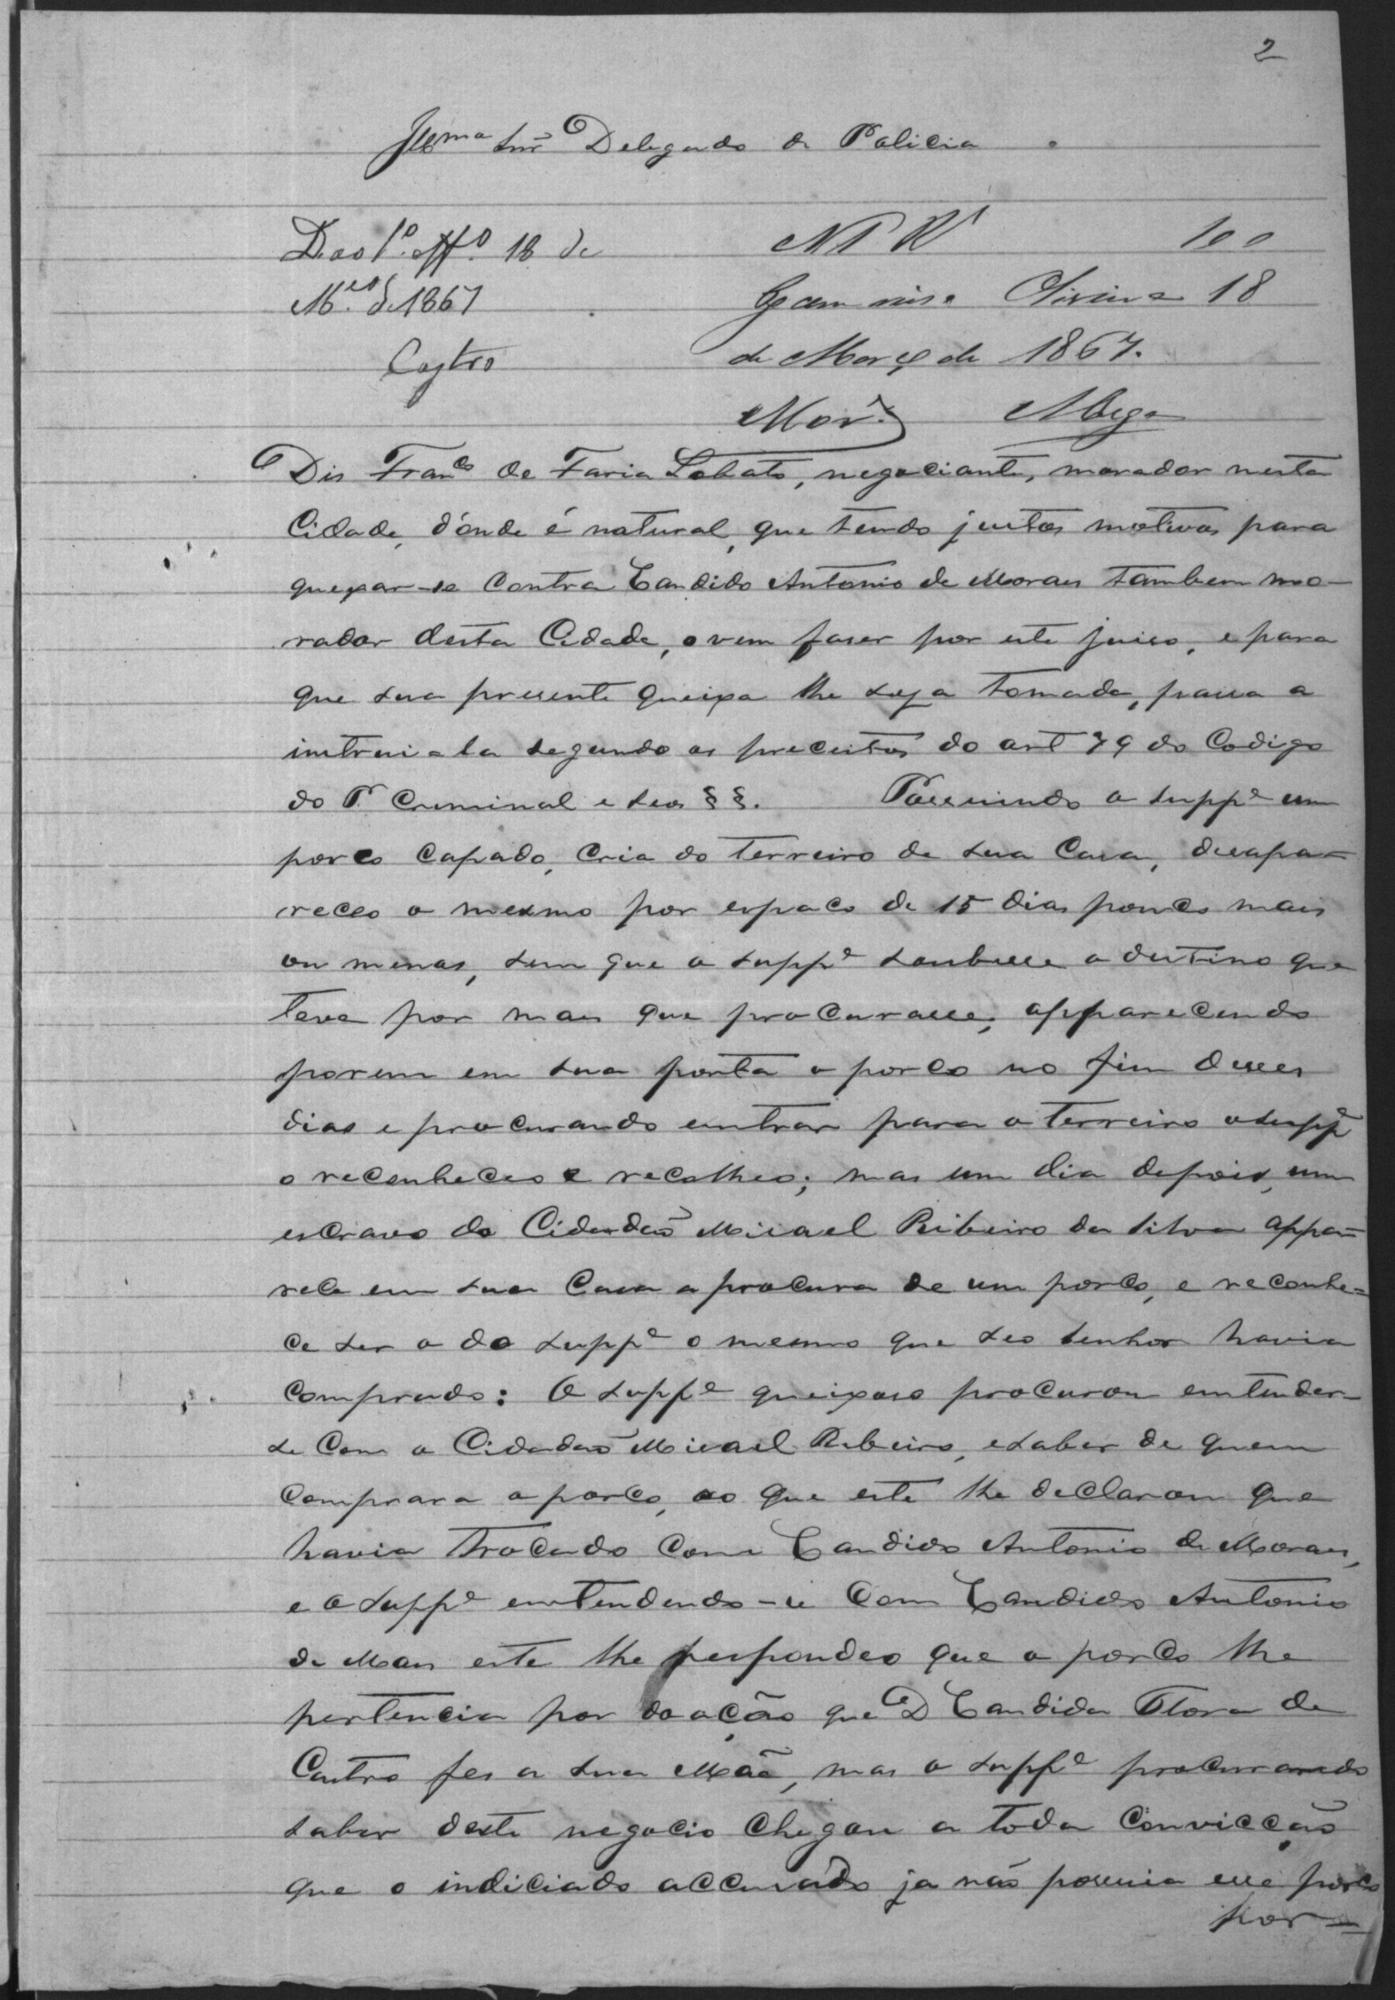 2
Illmo Snr Delegado de Policia
D. ao 1º. Off.º 18 de
M.ço de 1867
Castro
N 1 Rs 100
Oliveira 18
de Março de 1867.
Mor.
Dis Franco de Faria Lobato, negociante, morador nesta
Cidade, d'onde é natural, que tendo justos motivos para
quexar-se contra Candido Antonio de Moraes tambem mo-
rador desta Cidade, o vem faser por este juiso, e para
que sua presente queixa lhe seja tomada, passa a
instrui-la segundo os preceitos do art 79 do Codigo
do P. Criminal e seos §§. Possuindo o suppe um
porco capado, cria do terreiro de sua Casa, desapa=
receo o mesmo por espaço de 15 dias pouco mais
ou menos, sem que o suppe soubesse o destino que
teve por mais que procurasse; apparecendo
porem em sua porta o porco no fim desses
dias e procurando entrar para o terreiro o suppe
o reconheceo e recolheo; mas um dia depois, um
escravo do Cidadão Misael Ribeiro da Silva appa=
rece em sua Casa a procura de um porco, e reconhe=
ce ser o do suppe o mesmo que seo senhor havia
comprado: O suppe queixoso procurou entender-
se com o Cidadão Misael Ribeiro, e saber de quem
comprara o porco, ao que este lhe declarou que
havia trocado com Candido Antonio de Moraes,
e o suppe entendendo-se com Candido Antonio
de Mors este lhe respondeo que o porco lhe
pertencia por doação que D Candida Flora de
Castro fes a sua Mãe, mas o suppe procurando
saber deste negocio chegou a toda convicção
que o indiciado accusado ja não possuia esse porco
por=